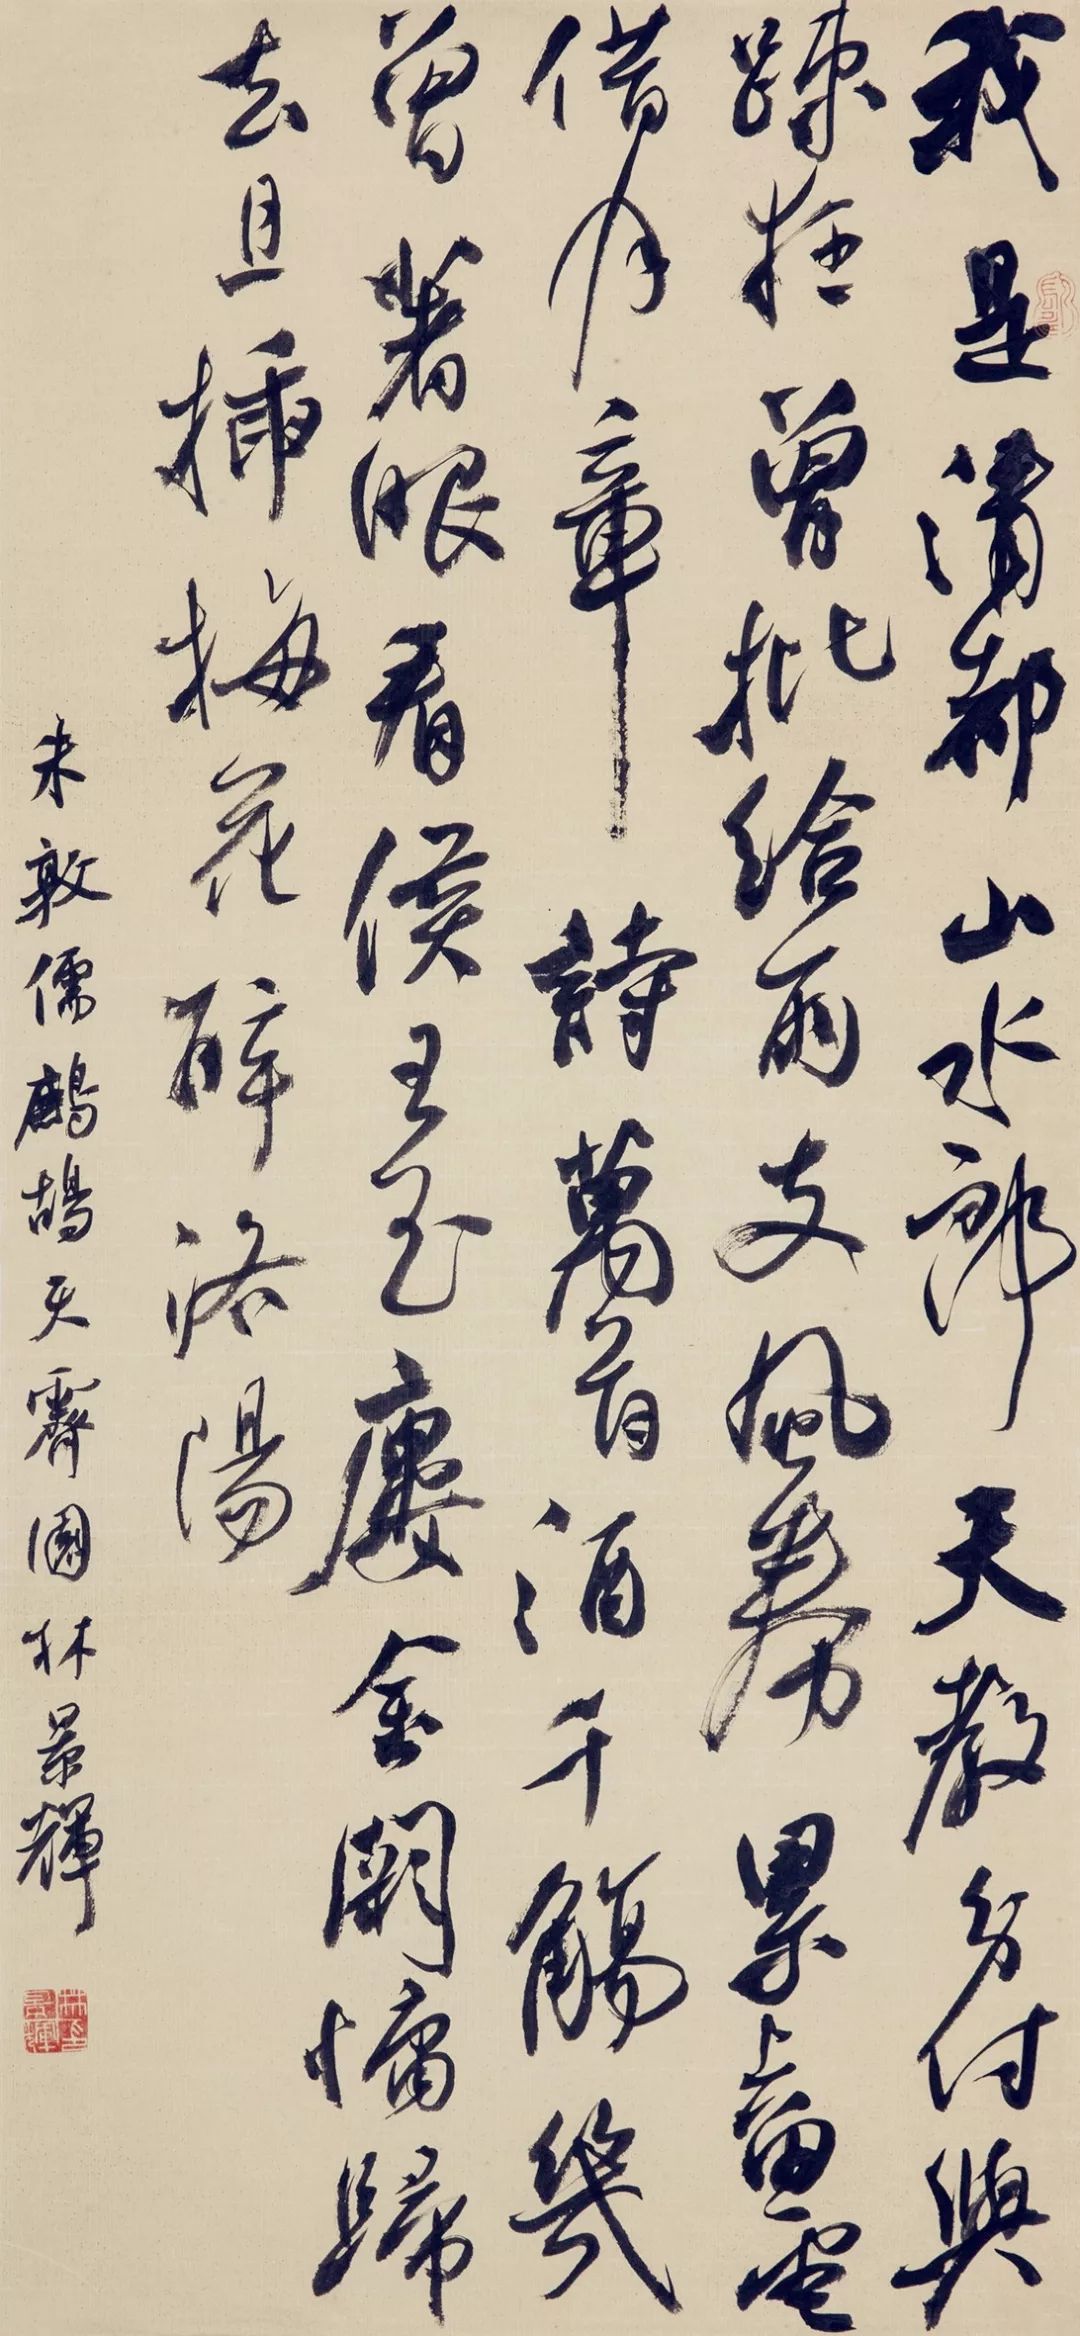 我是清都山水郎天教分付與
踈狂曾批給雨支風券累上留雲
借月章詩萬首酒千觴幾
曾著眼看侯王玉樓金闕慵歸
去且插梅花醉洛陽
朱敦儒鷓鴣天霽園林景輝